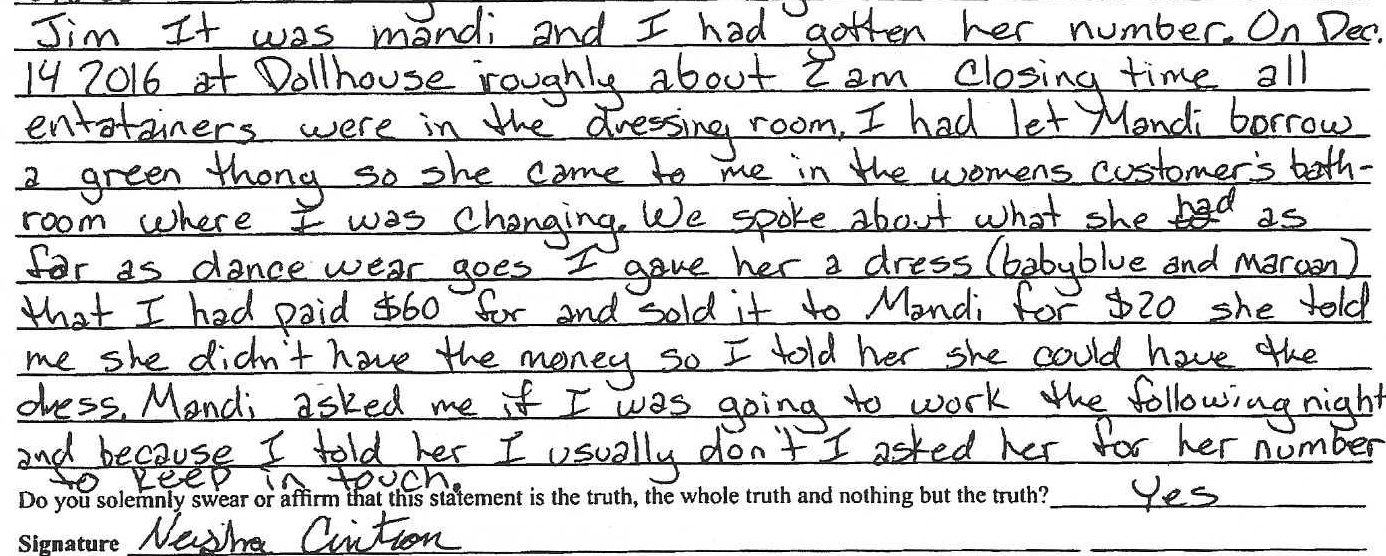 Jim It was mandi and I had gotten her number. On Dec.
14 2016 at Dollhouse roughly about 2 am Closing time all
entatainers were in the dressing room, I had let Mandi borrow
a green thong so she came to me in the womens customer's bath-
room where I was changing. We spoke about what she had as
far as dance wear goes I gave her a dress (babyblue and maroon)
that I had paid $60 for and sold it to Mandi for $20 she told
me she didn't have the money so I told her she could have the
dress. Mandi asked me if I was going to work the following night
and because I told her I usually don't I asked her for her number
to keep in touch.
Do you solemnly swear or affirm that this statement is the truth, the whole truth and nothing but the truth? Yes
Signature Neisha Cintron